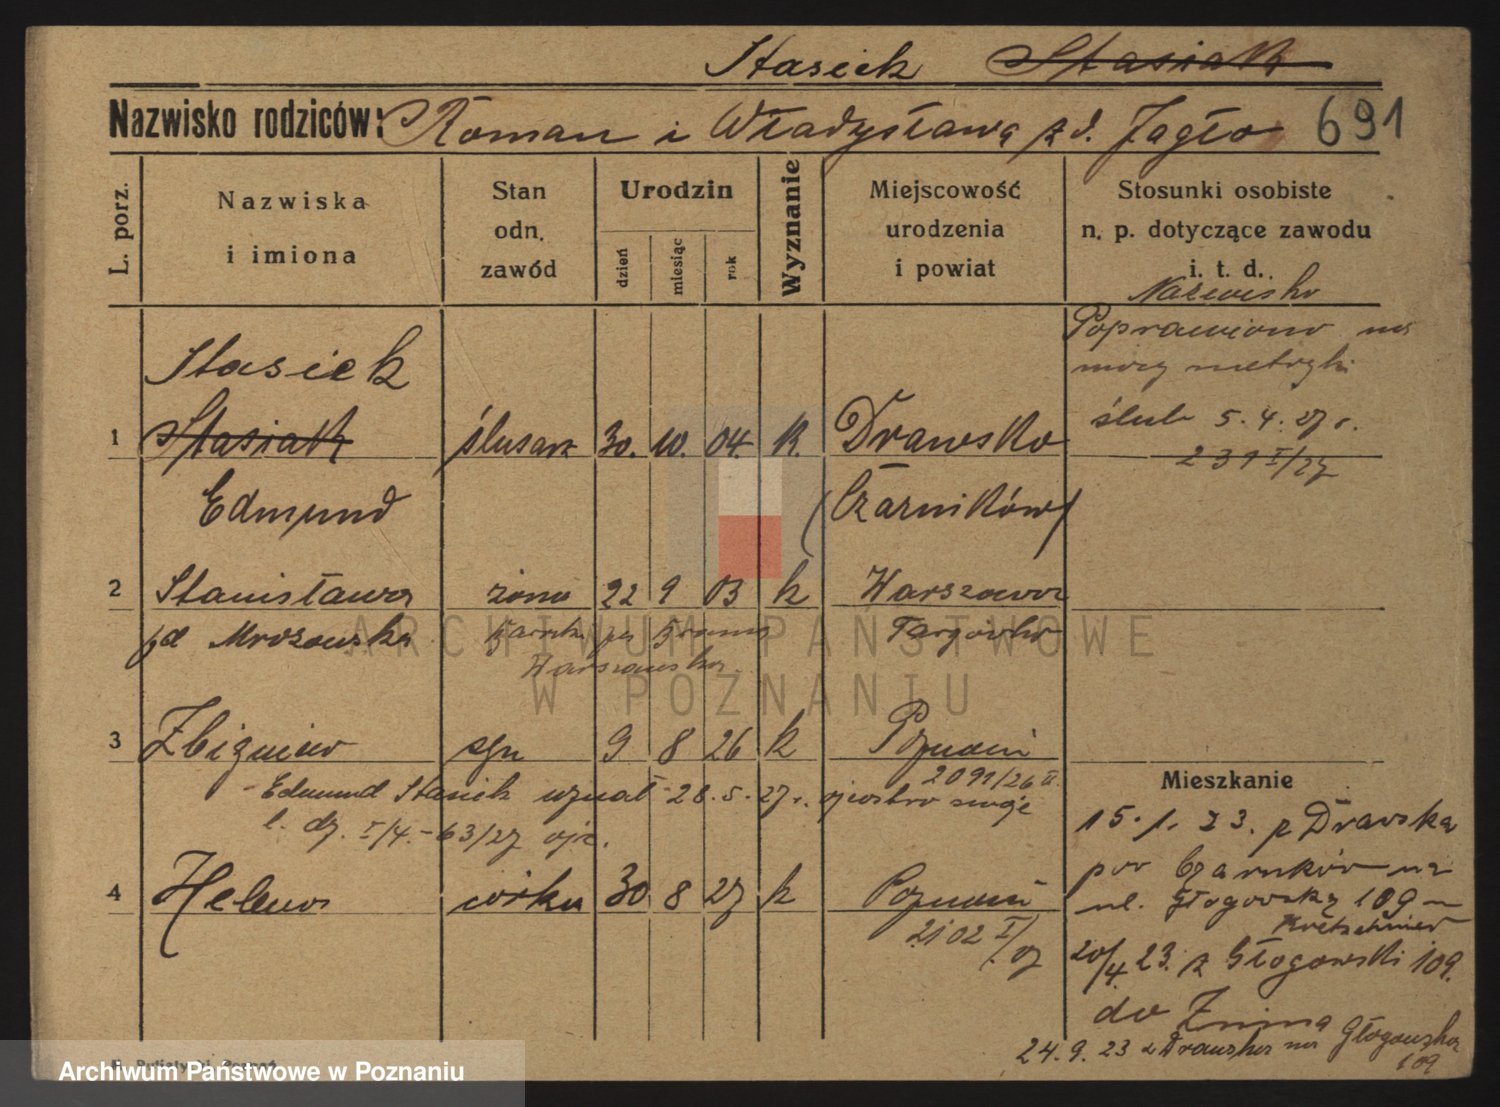 Stasiek Stasiak
Nazwisko rodziców: Roman i Władysława z d. Jagło 691
L. porz.
Nazwiska i imiona
Stan odn. zawód
Urodzin
dzień
miesiąc
rok
Wyznanie
Miejscowość urodzenia i powiat
Stosunki osobiste n. p. dotyczące zawodu i. t. d.
Nazwisko
Poprawiono na
mocy metryki
Stasiek
ślub 5. 4. 27 r.
1 Stasiak ślusarz 30. 10. 04. k. Drawsko
231 I/27
Edmund (Czarników)
2 Stanisława żona 22 9 03 k Warszawa
zd Mrozowska Targówko
Warszawska
ARCHIWUM PAŃSTWOWE
W POZNANIU
3 Zbigniew syn 9 8 26 k Poznań
2091/26 II
Mieszkanie
- Edmund Stasiek uznał 28. 5. 27 r. ojcostwo swoje
l. dz. I/4. - 63/27 ojc.
15. 1. 23. z Drawska
pow Czarników na
4 Helena córka 30 8 27 k Poznań
ul. Głogowską 109
Kretschmer
2102 I/27
20/4. 23. z Głogowski 109.
do Żnina
24. 9. 23 z Drawska na Głogowska
109
Archiwum Państwowe w Poznaniu